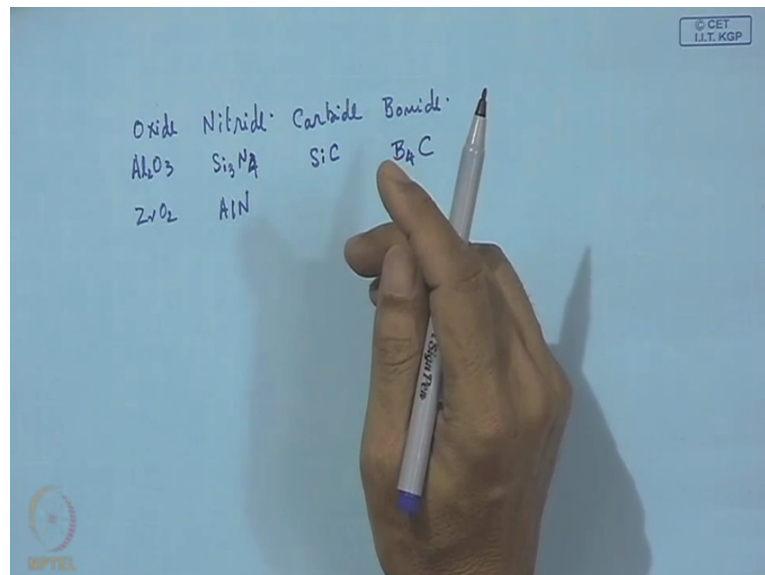 © CET
I.I.T. KGP
Oxide Nitride Carbide Boride
Al2O3 Si3N4 SiC B4C
ZrO2 AlN
Sign Pen
NPTEL